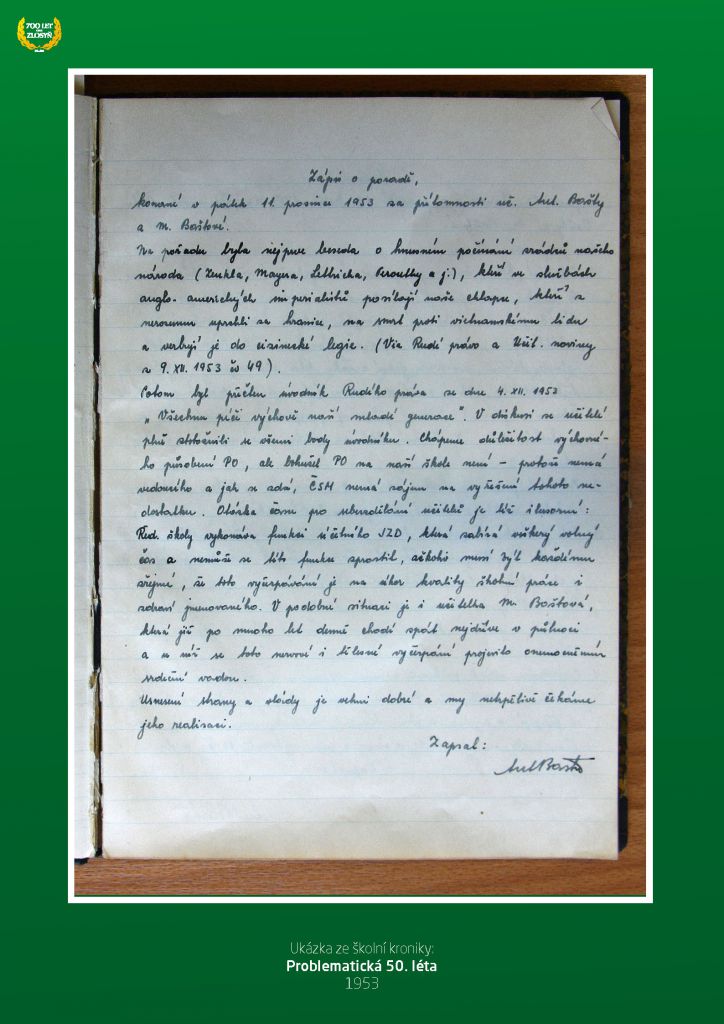 700 LET
ZLOSYŇ
Zápis o poradě,
konané v pátek 11. prosince 1953 za přítomnosti uč. Ant. Bašty
a M. Baštové.
Na pořadu byla nejprve beseda o hnusném počínání zrádců našeho
národa (Zenkla, Mayera, Lettricha, Peroutky a j.), kteří ve službách
anglo-amerických imperialistů posílají naše chlapce, kteří z
nerozumu uprchli za hranice, na smrt proti vietnamskému lidu
a verbují je do cizinecké legie. (Viz Rudé právo a Učit. noviny
z 9. XII. 1953 čís 49).
Potom byl přečten úvodník Rudého práva ze dne 4. XII. 1953
„Všechnu péči výchově naší mladé generace". V diskusi se učitelé
plně ztotožnili se všemi body úvodníku. Chápeme důležitost výchovné-
ho působení PO, ale bohužel PO na naší škole není – protože nemá
vedoucího a jak se zdá, ČSM nemá zájem na vyřešení tohoto ne-
dostatku. Otázka času pro sebevzdělání učitelů je též ilusorní:
Řed. školy vykonává funkci účetního JZD, která zabírá veškerý volný
čas a nemůže se této funkce zprostit, ačkoliv musí být každému
zřejmé, že toto vyčerpávání je na úkor kvality školní práce i
zdraví jmenovaného. V podobné situaci je i učitelka M. Baštová,
která již po mnoho let denně chodí spát nejdříve o půlnoci
a u níž se toto nervové i tělesné vyčerpání projevilo onemocněním
srdeční vadou.
Usnesení strany a vlády je velmi dobré a my netrpělivě čekáme
jeho realisaci.
Zapsal:
Ant Bašta
Ukázka ze školní kroniky:
Problematická 50. léta
1953